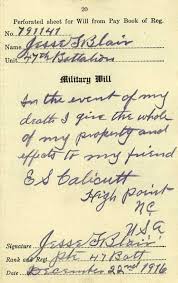 20
Perforated sheet for Will from Pay Book of Reg.
No. 791141
Name Jesse T Blair
Unit 47th Battalion
Military Will
In the event of my
death I give the whole
of my property and
effects to my friend
E S Calicutt
High Point
N.C.
U.S.A
Signature Jesse T Blair
Rank and Reg. Pte 47 Batt
Date December 22nd 1916